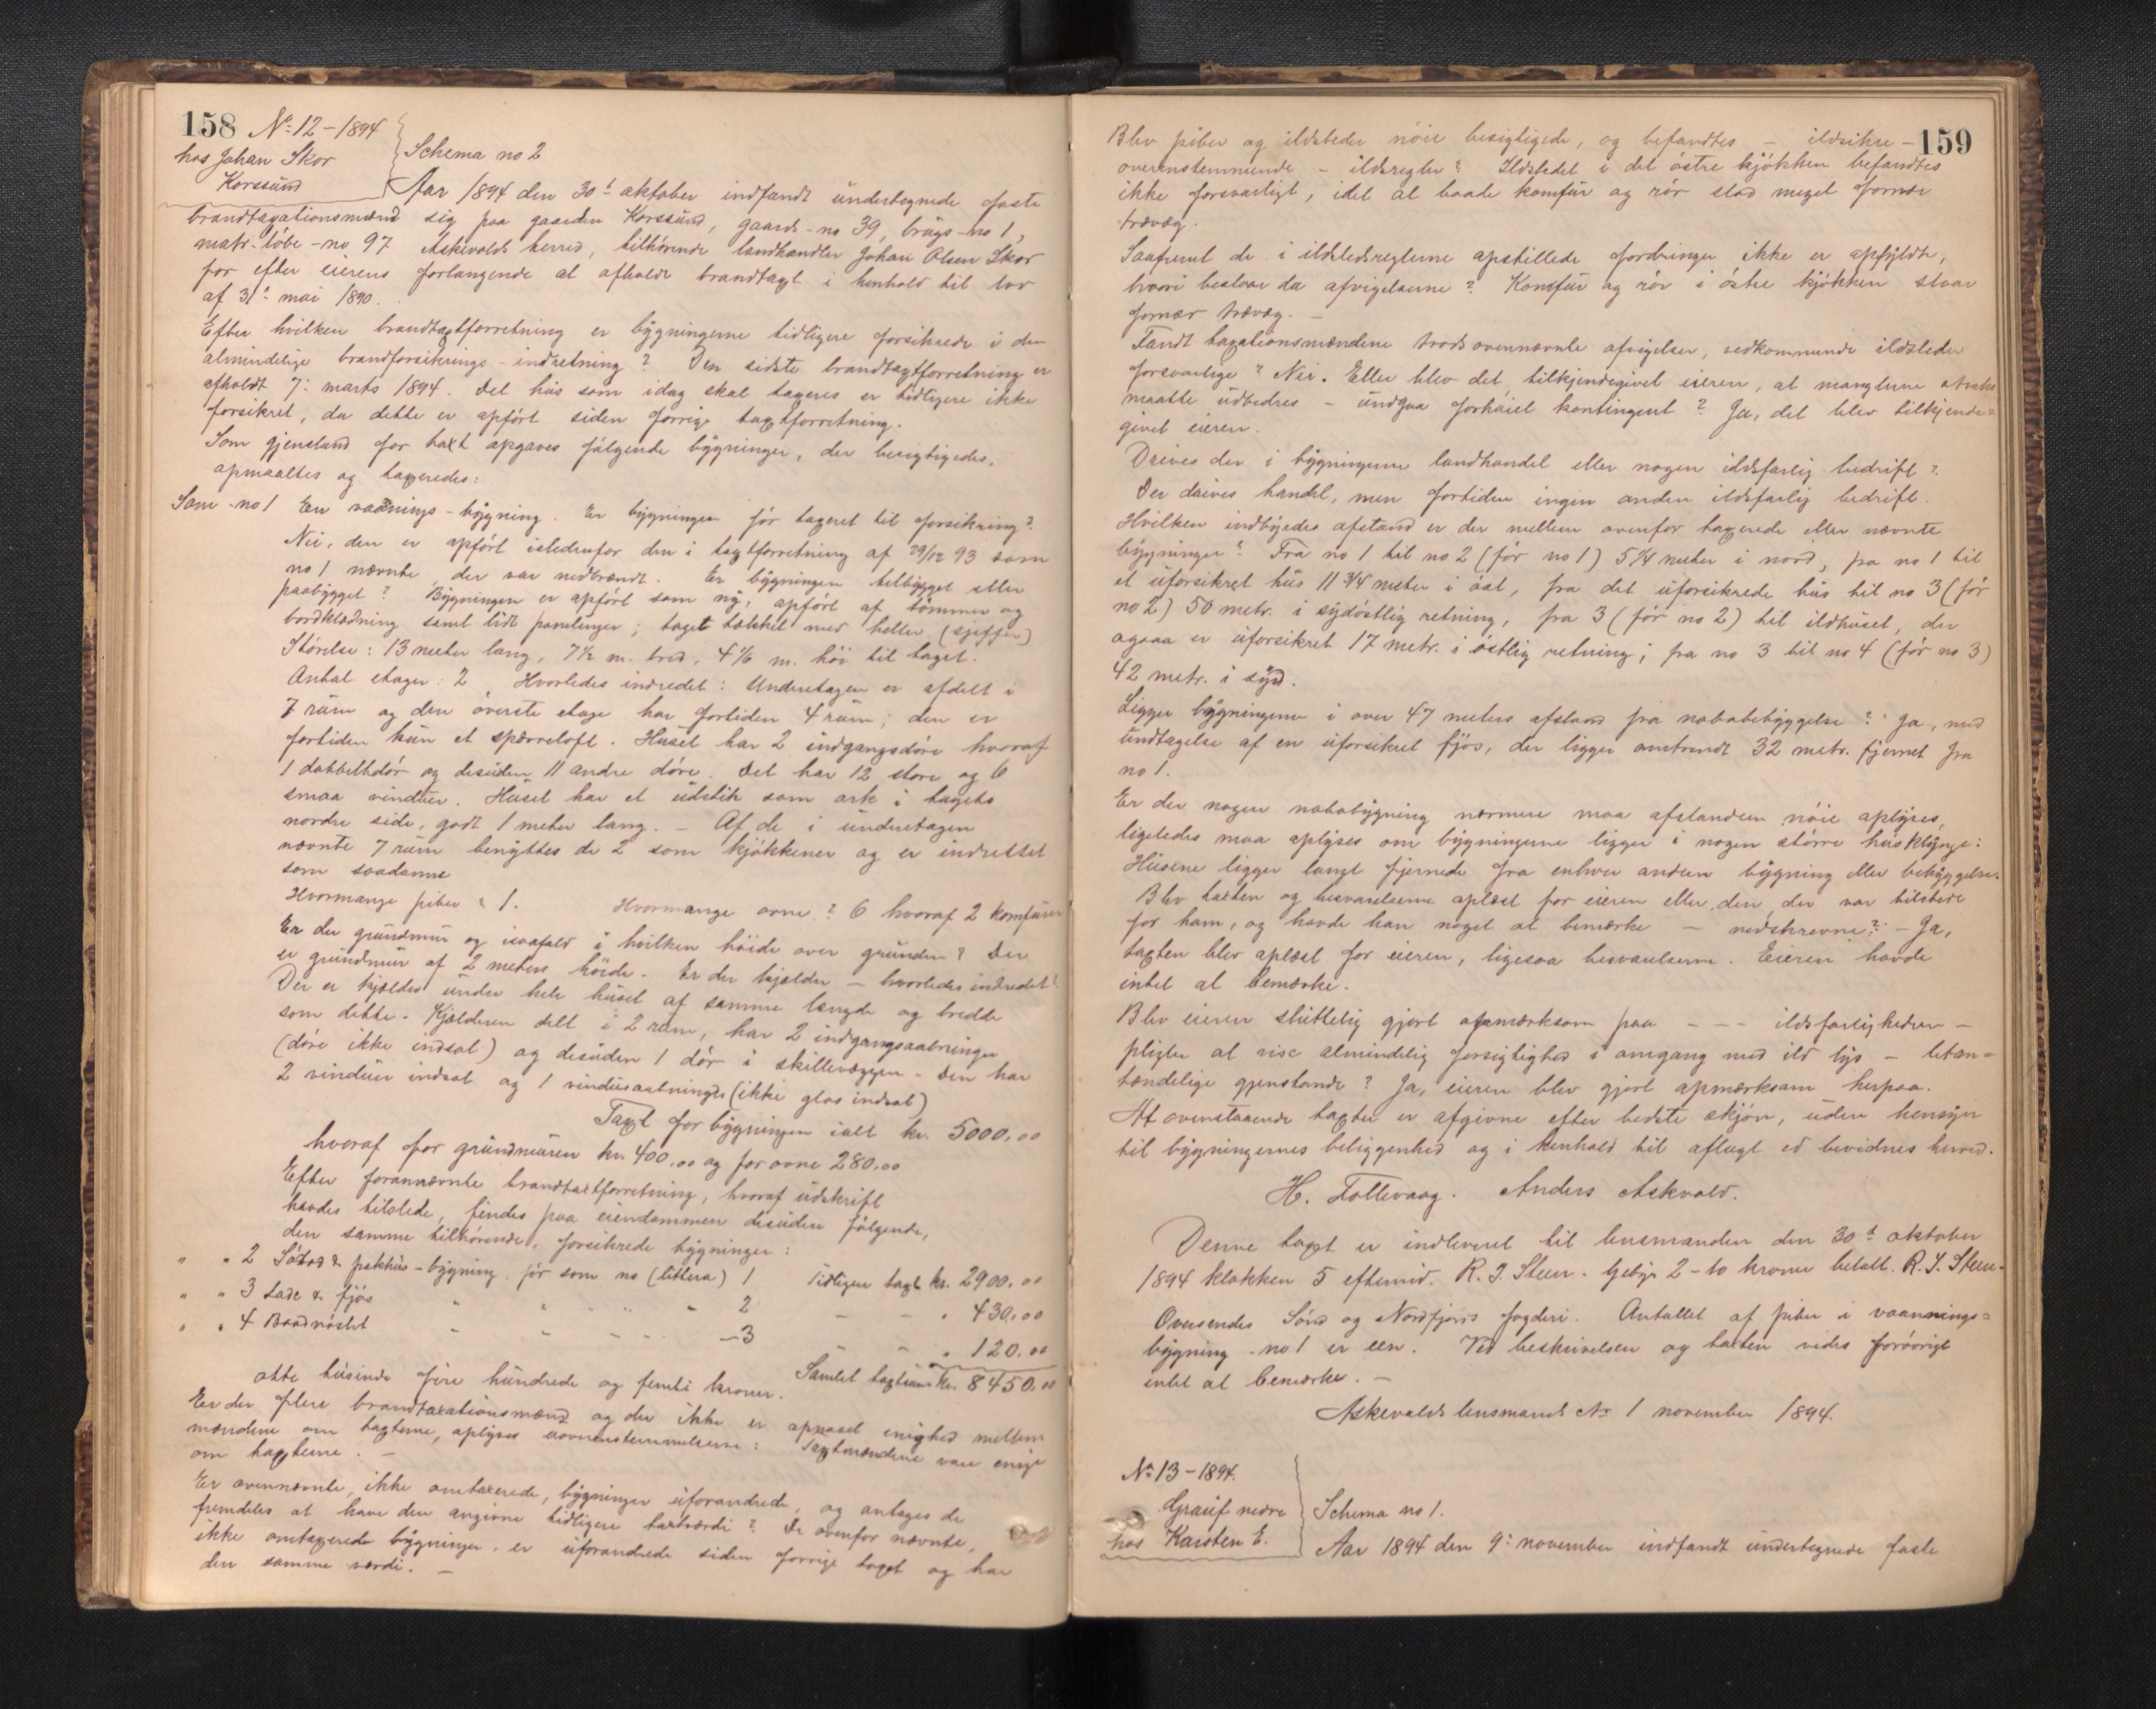 158 No 12 - 1894
hos Johan Skor
Korssund
Schema no 2
Aar 1894 den 30t oktober indfandt undertegnede faste
brandtaxationsmænd sig paa gaarden Korssund, gaards-no 39, brugs-no 1,
matr-løbe-no 97 Askevolds herred, tilhørende landhandler Johan Olsen Skor
for efter eierens forlangende at afholde brandtaxt i henhold til lov
af 31te mai 1890.
Efter hvilken brandtaxtforretning er bygningerne tidligere forsikrede i den
almindelige brandforsikrings-indretning? Den sidste brandtaxtforretning er
afholdt 7: marts 1894. Det hus som idag skal taxeres er tidligere ikke
forsikret, da dette er opført siden forrige taxtforretning.
Som gjenstand for taxt opgaves følgende bygninger, der besigtigedes,
opmaaltes og taxeredes:
Som -no 1 En vaanings-bygning. Er bygningen før taxeret til forsikring?
Nei, den er opført istedenfor den i taxtforretning af 29/12 93 som
no 1 nævnte, der var nedbrændt. Er bygningen tilbygget eller
paabygget? Bygningen er opført som ny, opført af tømmer og
bordklædning samt lidt panelinger; taget tækket med heller (sjeffer)
Størelse: 13 meter lang, 7½ m. bred, 4 1/6 m. høi til taget.
Antal etager: 2 Hvorledes indredet: Underetagen er afdelt i
7 rum og den øverste etage har fortiden 4 rum; den er
fortiden kun et sperreloft. Huset har 2 indgangsdøre hvoraf
1 dobbeltdør og desuden 11 andre døre. Det har 12 store og 6
smaa vinduer. Huset har et udstik som ark i tagets
nordre side, godt 1 meter lang. - Af de i underetagen
nævnte 7 rum benyttes de 2 som kjøkkener og er indrettet
som saadanne
Hvormange piber? 1. Hvormange ovne? 6 hvoraf 2 komfurer
Er der grundmur og isaafald i hvilken høide over grunden? Der
er grundmur af 2 meters høide. Er der kjælder - hvorledes indredet?
Der er kjælder under hele huset af samme længde og bredde
som dette. Kjælderen delt i 2 rum, har 2 indgangsaabninger
(døre ikke indsat) og desuden 1 dør i skillevæggen. Den har
2 vinduer indsat og 1 vinduesaabninger (ikke glas indsat)
Taxt for bygningen ialt kr. 5000,00
hvoraf for grundmuren kr. 400,00 og for ovne 280,00
Efter forannævnte brandtaxtforretning, hvoraf udskrift
havdes tilstede, findes paa eiendommen desuden følgende,
den samme tilhørende, forsikrede bygninger:
" " 2 Søbod & pakhus-bygning, før som no (littera) 1 Tidligere taxt kr. 2900,00
" " 3 Lade & fjøs " " " " 2 - - " 430,00
" " 4 Baadnøstet - - - - - 3 - " 120.00
Samlet taxtsum kr. 8450,00
otte tusinde fire hundrede og femti kroner.
Er der flere brandtaxationsmænd og der ikke er opnaaet enighed mellem
mændene om taxterne, oplyses uovrenstemmelserne: Taxtmændene vare enige
om taxterne. -
Er ovennævnte, ikke omtaxerede, bygninger uforandrede, og antages de
fremdeles at have den angivne tidligere taxtværdi? De ovenfor nævnte,
ikke omtaxerede bygninger, er uforandrede siden forrige taxt og har
den samme værdi. -
159
Blev piber og ildsteder nøie besigtigede, og befandtes - ildsikre -
overenstemmende - ildsregler? Ildstedet i det østre kjøkken befandtes
ikke forsvarligt, idet at baade komfur og rør stod meget fornær
trævæg.
Saafremt de i ildstedsreglerne opstillede fordringer ikke er opfyldte,
hvori bestaar da afvigelserne? Komfur og rør i østre kjøkken staar
fornær trævæg. -
Fandt taxationsmændene trods ovennævnte afvigelser, vedkommende ildsteder
forsvarlige? Nei. Eller blev det tilkjendegivet eieren, at manglerne straks
maatte udbedres - undgaa forhøiet kontingent? Ja, det blev tilkjende=
givet eieren.
Drives der i bygningerne landhandel eller nogen ildsfarlig bedrift?
Der drives handel, men fortiden ingen anden ildsfarlig bedrift.
Hvilken indbyrdes afstand er der mellem ovenfor taxerede eller nævnte
bygninger? Fra no 1 til no 2 (før no 1) 5¼ meter i nord, fra no 1 til
et uforsikret hus 11¾ meter i øst, fra det uforsikrede hus til no 3 (før
no 2) 50 metr. i sydøstlig retning, fra 3 (før no 2) til ildhuset, der
ogsaa er uforsikret 17 metr. i østlig retning; fra no 3 til no 4 (før no 3)
42 metr. i syd.
Ligger bygningerne i over 47 meters afstand fra nabobebyggelse? Ja, med
undtagelse af en uforsikret fjøs, der ligger omtrendt 32 metr. fjernet fra
no 1.
Er der nogen nabobygning nærmere maa afstanden nøie oplyses,
ligeledes maa oplyses om bygningerne ligger i nogen større husklynge:
Husene ligger langt fjernede fra enhver anden bygning eller bebyggelse.
Blev taxten og besvarelserne oplæst for eieren eller den, der var tilstede
for ham, og havde han noget at bemærke - nedskrevne? - Ja,
taxten blev oplæst for eieren, ligesaa besvarelserne. Eieren havde
intet at bemærke.
Blev eieren sluttelig gjort opmærksom paa - - - ildsfarligheden -
pligten at vise almindelig forsigtighed i omgang med ild lys - letan=
tændelige gjenstande? Ja, eieren blev gjort opmærksom herpaa.
At ovenstaaende taxter er afgivne efter bedste skjøn, uden hensyn
til bygningernes beliggenhed og i henhold til aflagt ed bevidnes herved.
H. Tollevaag. Anders Askvold.
Denne taxt er indleveret til lensmanden den 30t oktober
1894 klokken 5 eftermid. R. J. Steen. Gebyr 2 - to kroner betalt. R. J. Steen.
Oversendes Sønd og Nordfjords fogderi. Antallet af piber i vaannings=
bygning -no 1 er een. Ved beskrivelsen og taxten vides forøvrigt
intet at bemærke. -
Askevolds lensmands Kr 1 november 1894.
No 13 - 1894.
Grauf nedre
hos Karsten E.
Schema no 1.
Aar 1894 den 9: november indfandt undertegnede faste